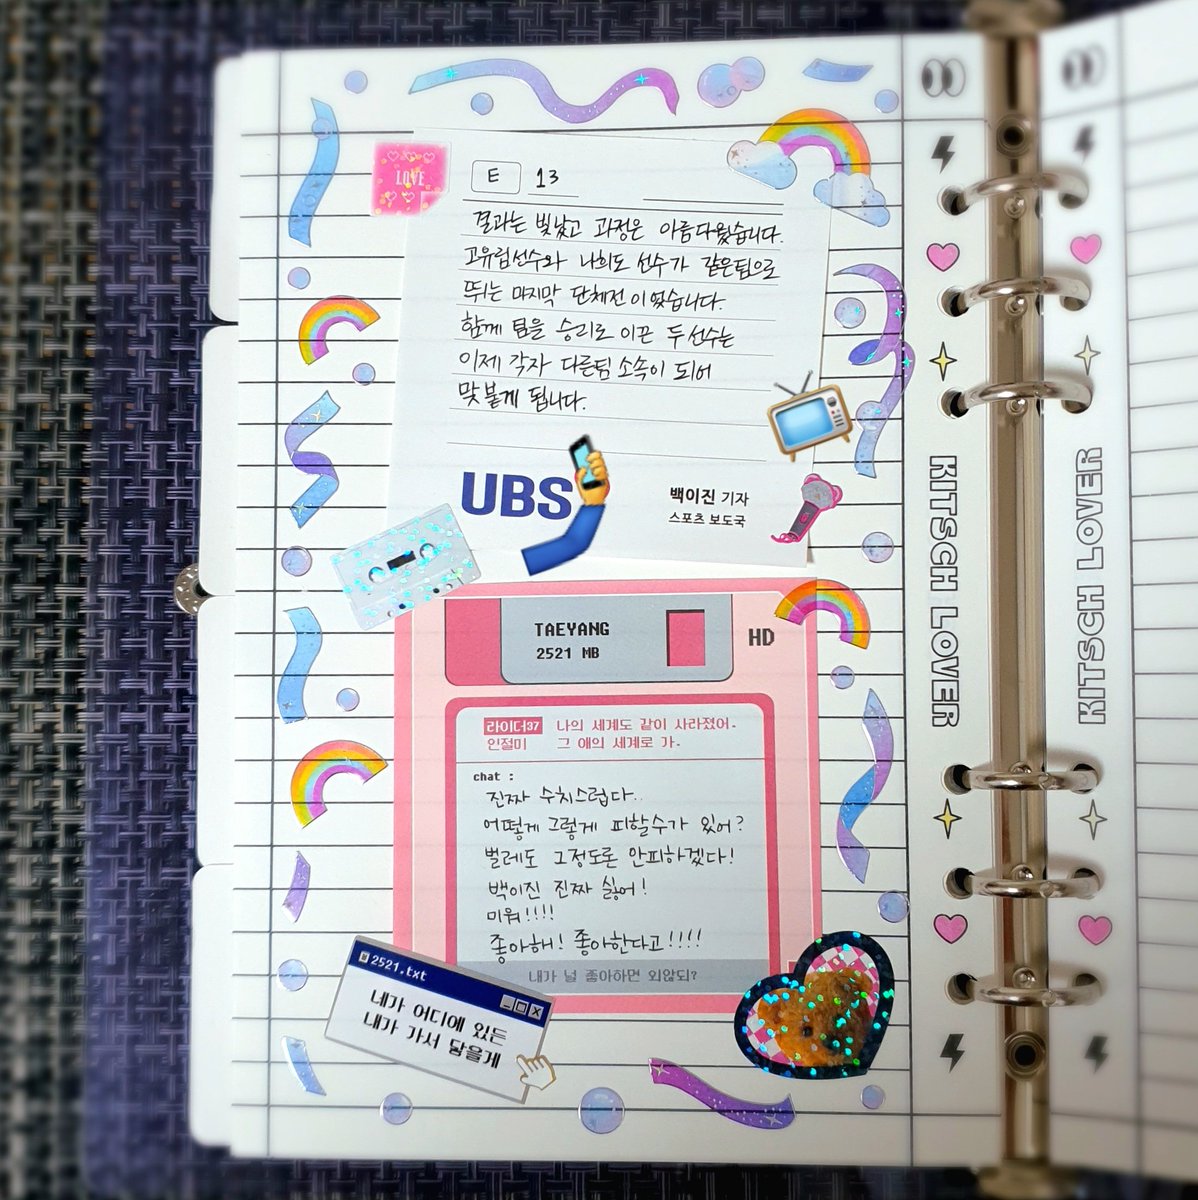 LOVE
E 13
결과는 빛났고 과정은 아름다웠습니다.
고유림선수와 나희도 선수가 같은팀으로
뛰는 마지막 단체전이었습니다.
함께 팀을 승리로 이끈 두선수는
이제 각자 다른팀 소속이 되어
맞붙게 됩니다.
UBS
백이진 기자
스포츠 보도국
TAEYANG
2521 MB
HD
라이더37 나의 세계도 같이 사라졌어.
인절미 그 애의 세계로 가.
chat :
진짜 수치스럽다..
어떻게 그렇게 피할수가 있어?
벌레도 그정도론 안피하겠다!
백이진 진짜 싫어!
미워!!!!
좋아해! 좋아한다고!!!!
내가 널 좋아하면 외않되?
2521.txt
네가 어디에 있든
내가 가서 닿을게
KITSCH LOVER
KITSCH LOVER